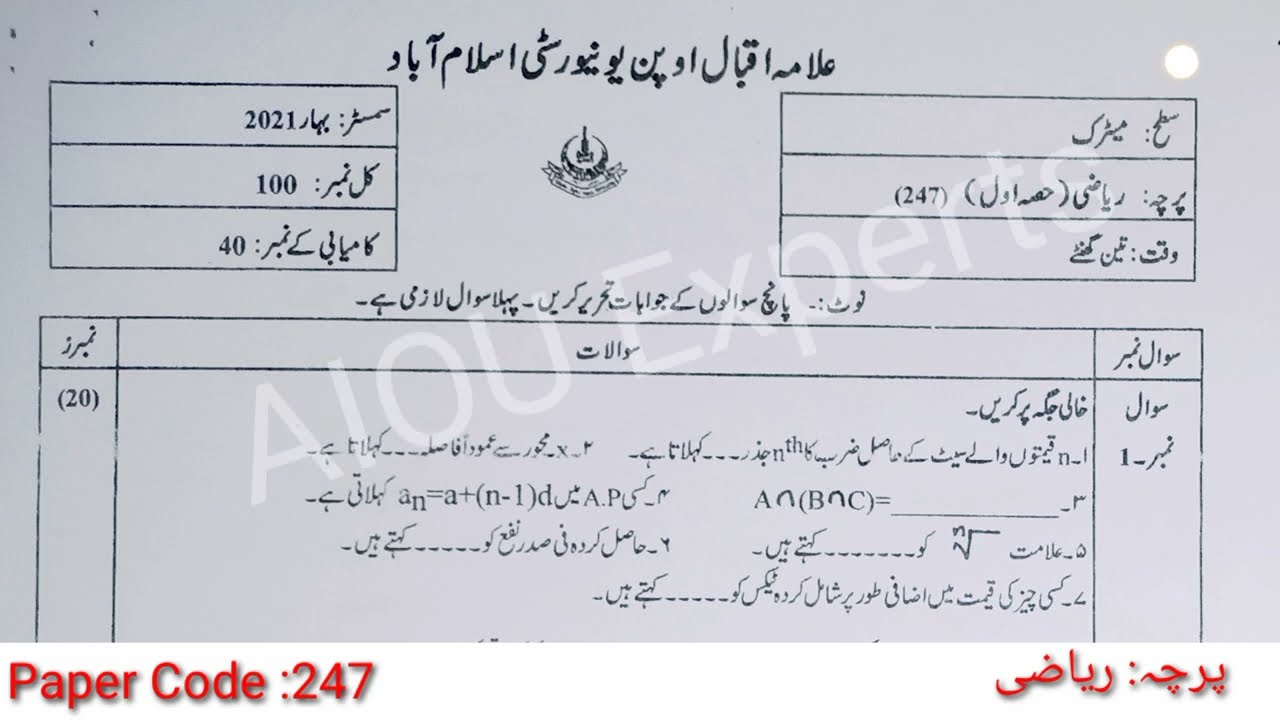 علامہ اقبال اوپن یونیورسٹی اسلام آباد
سطح: میٹرک
پرچہ: ریاضی (حصہ اول) (247)
وقت: تین گھنٹے
سمسٹر: بہار 2021
کل نمبر: 100
کامیابی کے نمبر: 40
نوٹ:۔ پانچ سوالوں کے جوابات تحریر کریں۔ پہلا سوال لازمی ہے۔
سوال نمبر سوالات نمبرز
سوال خالی جگہ پر کریں۔ (20)
نمبر۔1 ۱۔ n قیمتوں والے سیٹ کے حاصل ضرب کا nth جذر۔۔۔ کہلاتا ہے۔ ۲۔ x۔ محور سے عموداً فاصلہ۔۔۔۔ کہلاتا ہے۔
۳۔ A∩(B∩C)=____________ ۴۔ کسی A.P میں an=a+(n-1)d کہلاتی ہے۔
۵۔ علامت n√ کو۔۔۔۔۔۔۔۔ کہتے ہیں۔ ۶۔ حاصل کردہ فی صد نفع کو۔۔۔۔۔ کہتے ہیں۔
۷۔ کسی چیز کی قیمت میں اضافی طور پر شامل کردہ ٹیکس کو۔۔۔۔۔ کہتے ہیں۔
AIOU Experts
Paper Code :247
پرچہ: ریاضی